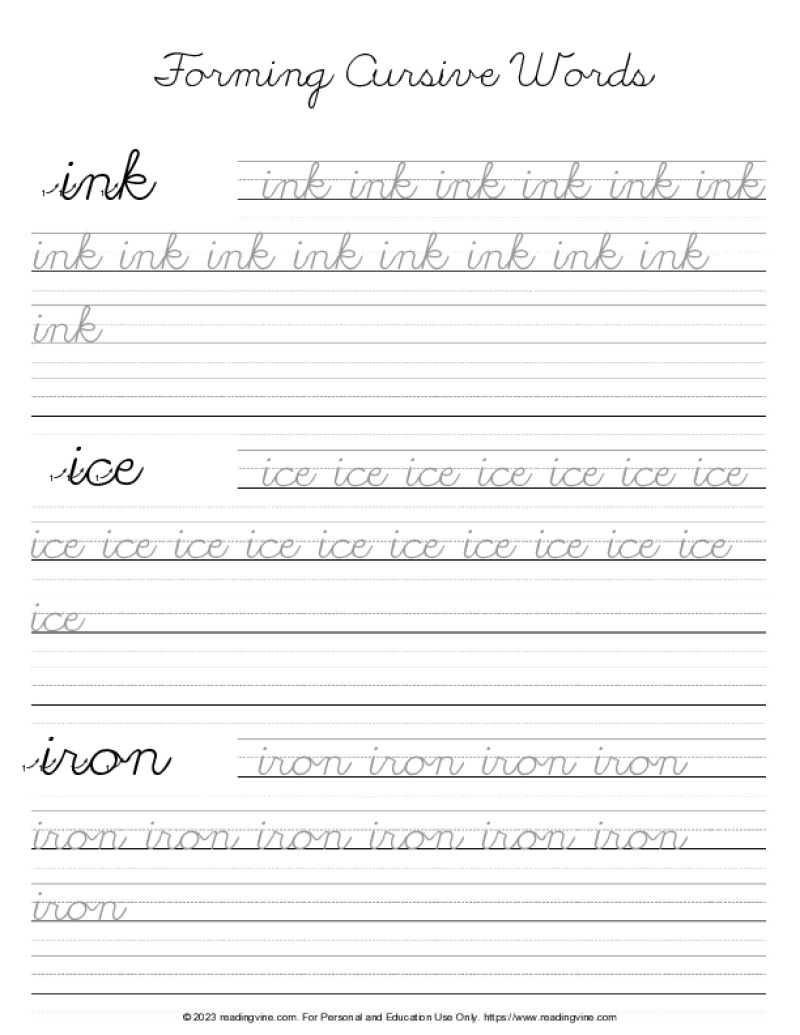 Forming Cursive Words
ink ink ink ink ink ink ink
ink ink ink ink ink ink ink ink
ink
ice ice ice ice ice ice ice ice
ice ice ice ice ice ice ice ice ice ice
ice
iron iron iron iron iron
iron iron iron iron iron iron
iron
© 2023 readingvine.com. For Personal and Education Use Only. https://www.readingvine.com